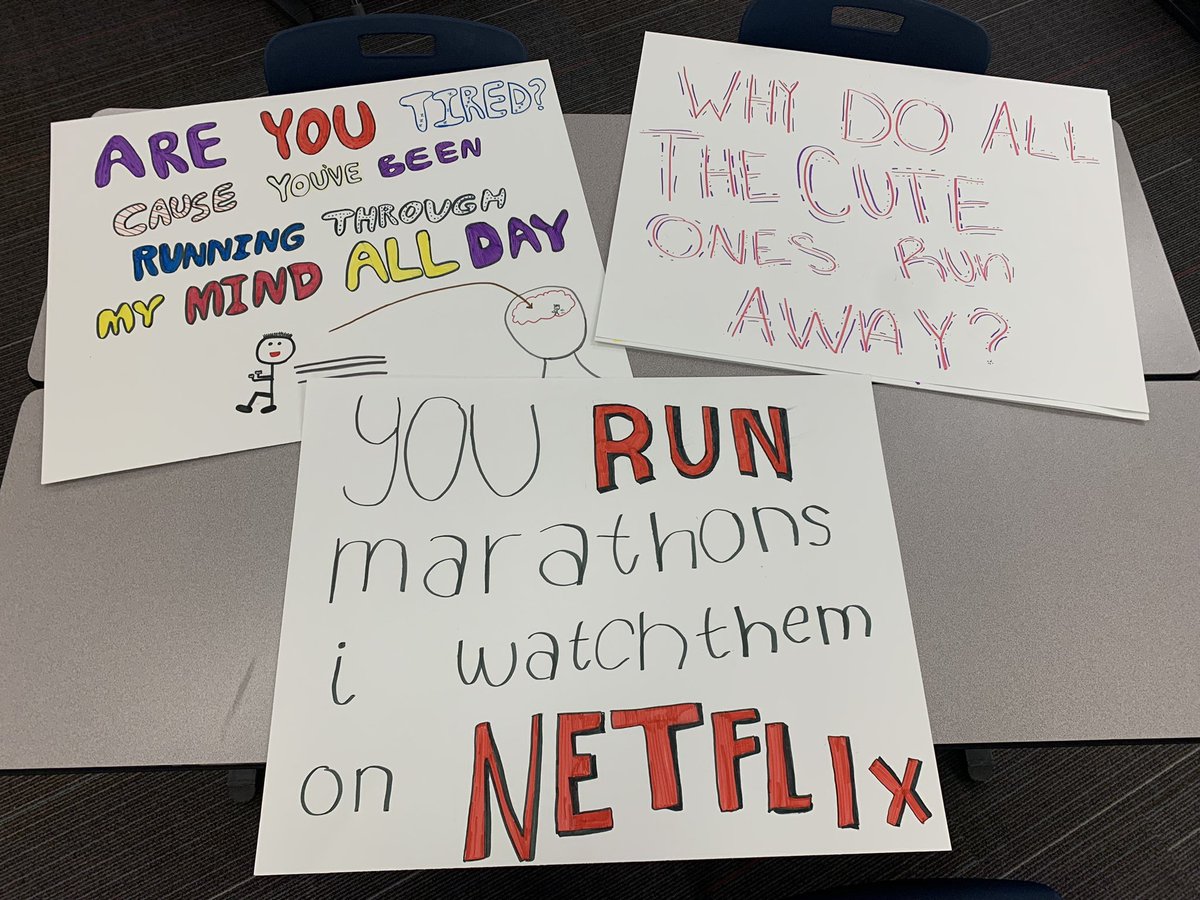 ARE YOU TIRED?
CAUSE YOU'VE BEEN
RUNNING THROUGH
MY MIND ALL DAY
WHY DO ALL
THE CUTE
ONES RUn
AWAY?
YOU RUN
marathons
i watch them
on NETFLIX